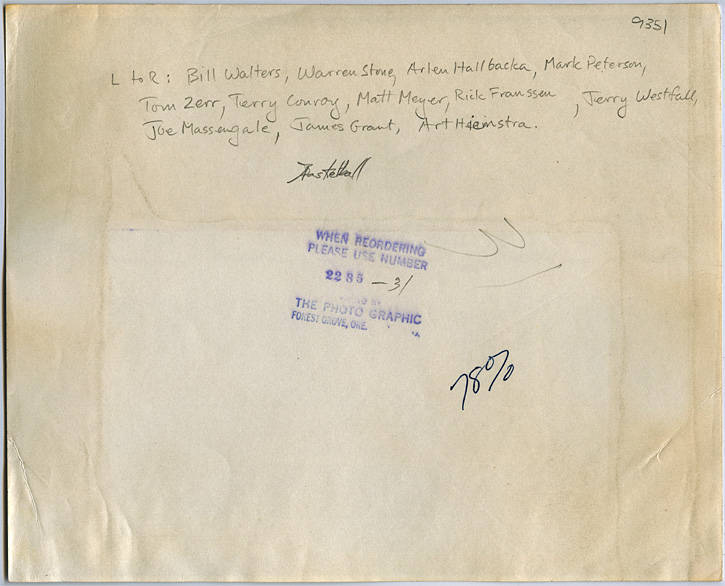 9351
L to R: Bill Walters, Warren Stone, Arlen Hallbacka, Mark Peterson,
Tom Zerr, Terry Conroy, Matt Meyer, Rick Franssen, Jerry Westfall,
Joe Massengale, James Grant, Art Hiemstra.
Basketball
WHEN REORDERING
PLEASE USE NUMBER
2285 - 31
THE PHOTO GRAPHIC
FOREST GROVE, ORE.
78%